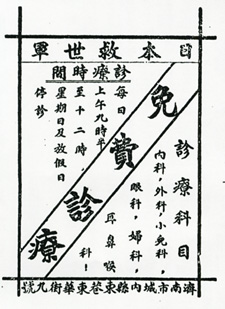 日本救世軍
診療科目
內科，外科，小兒科，
眼科，婦科，
耳鼻喉
科！
免費診療
診療時間
每日
上午九時半
至十二時，
星期日及放假日
停診
濟南市城內縣東巷東華街九號